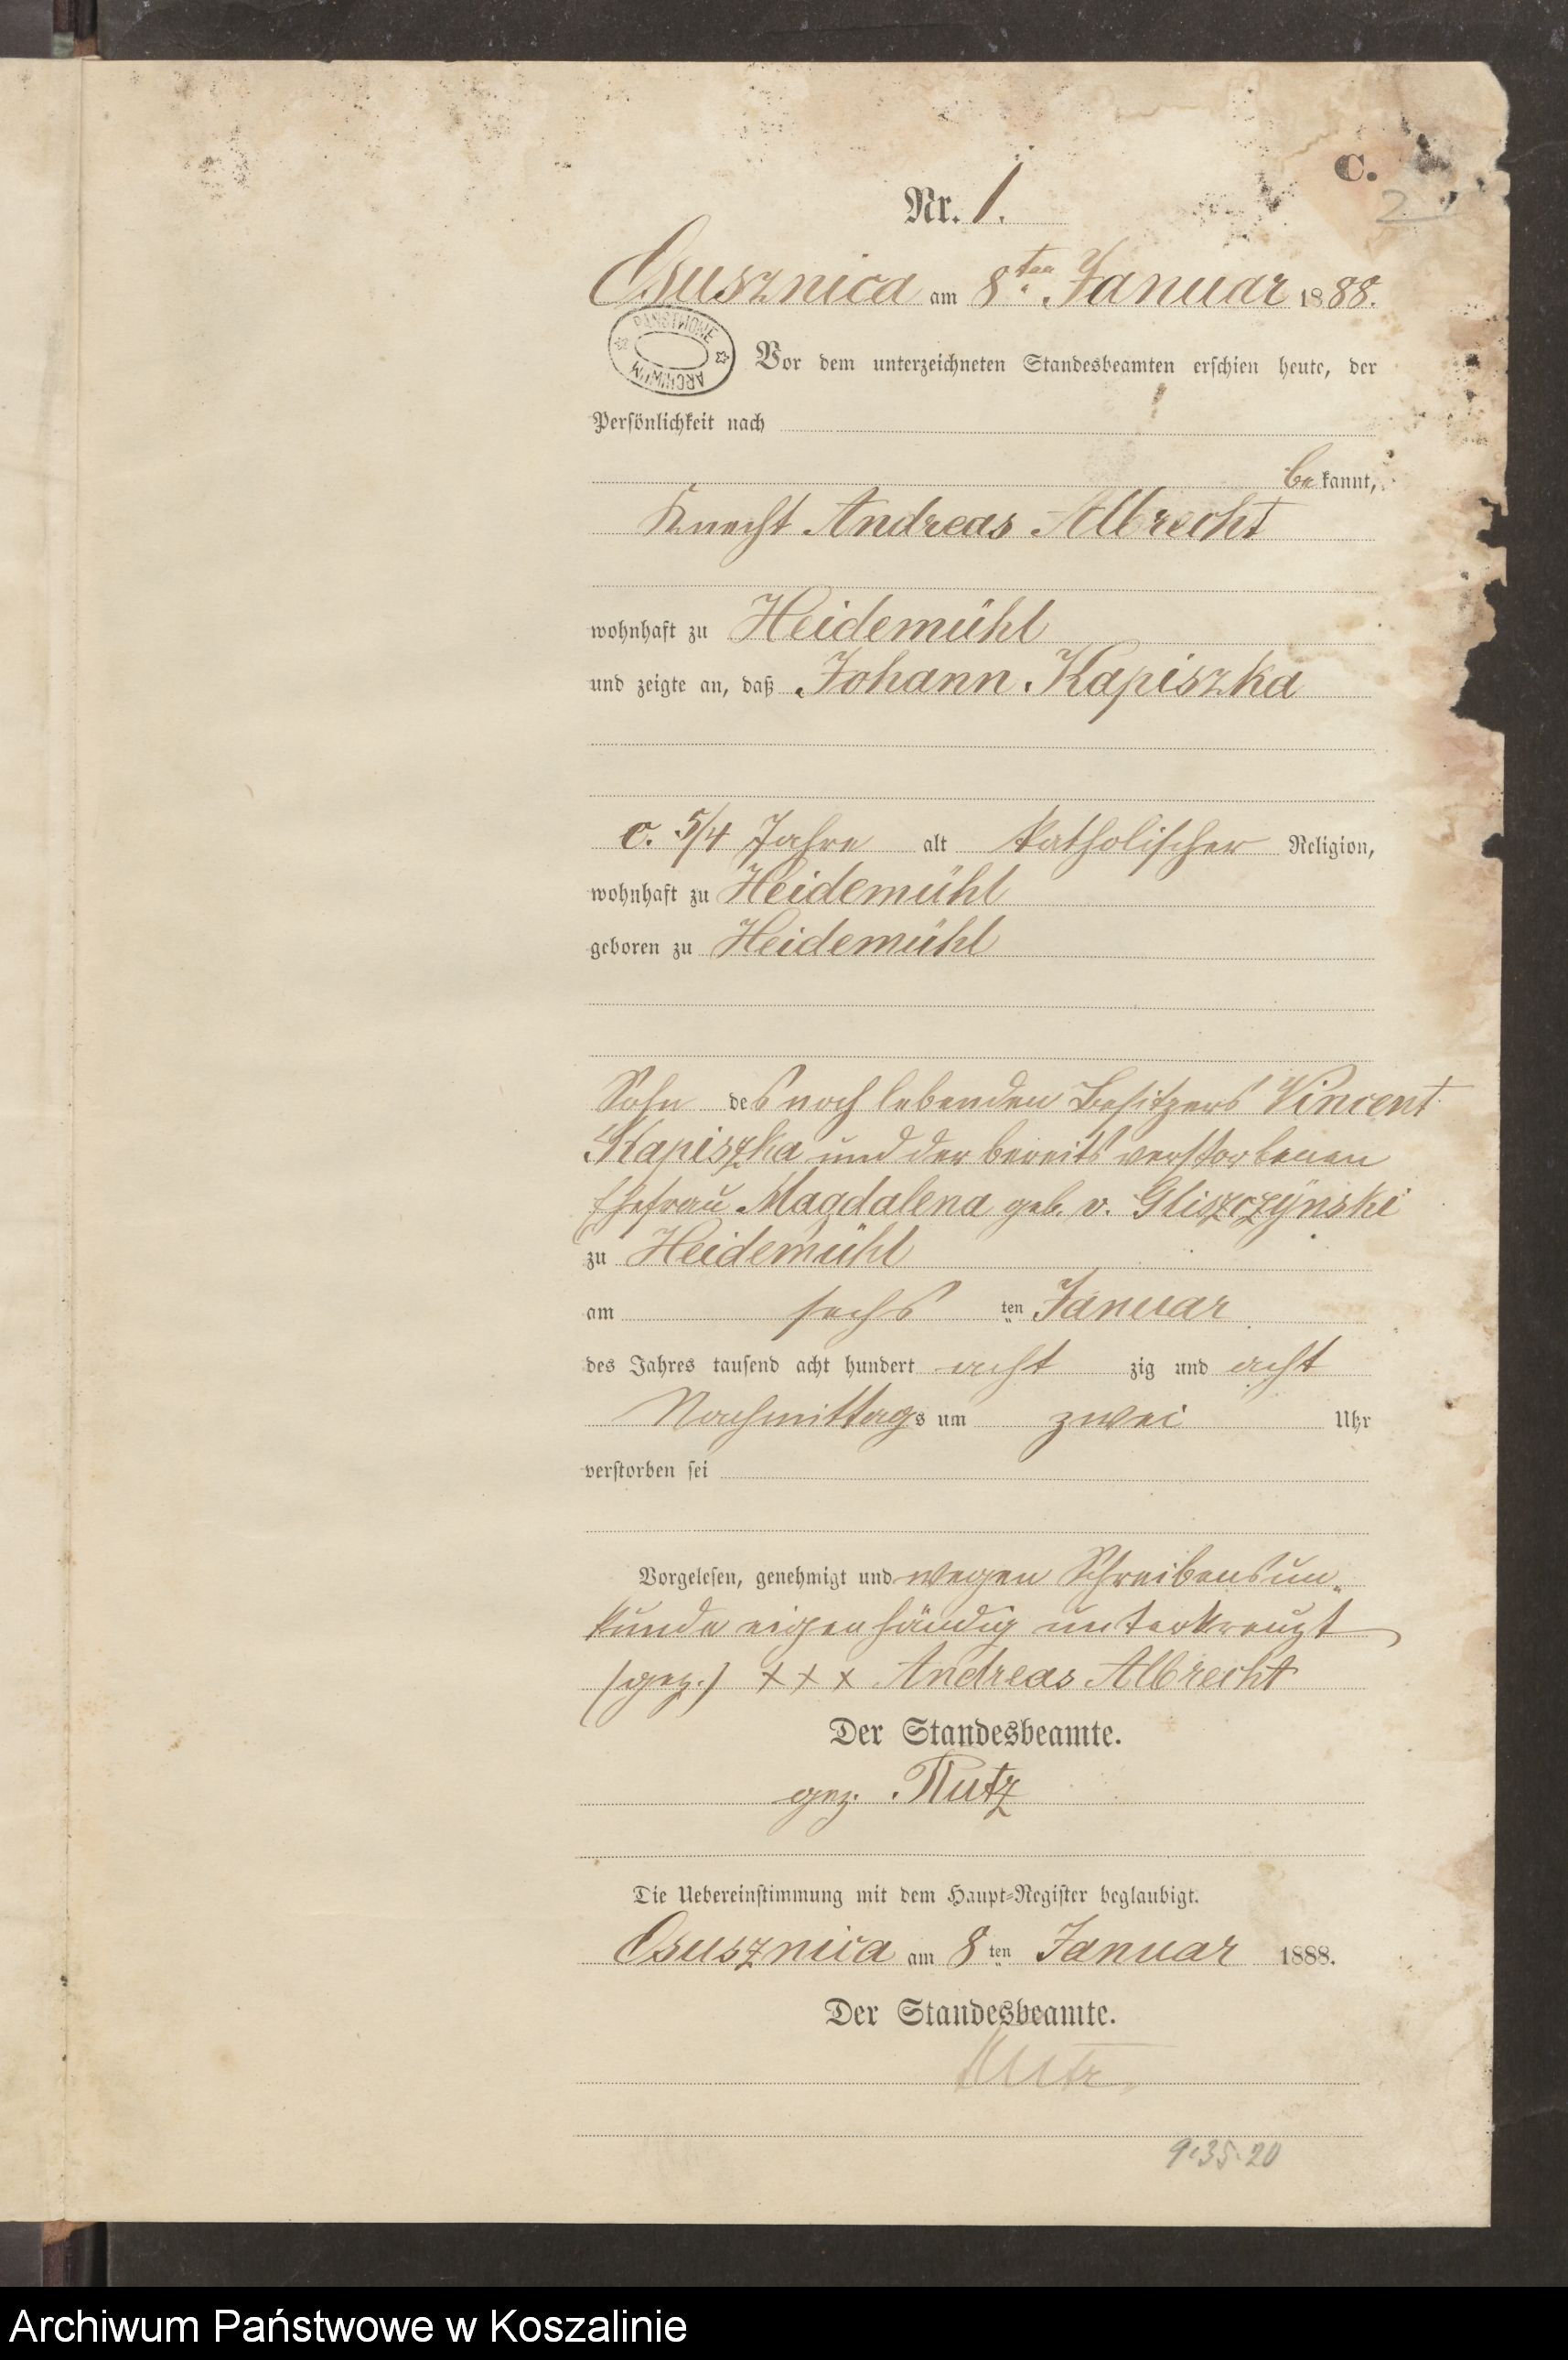 C.
2
Nr. 1.
Osusznica am 8ten Januar 1888.
PAŃSTWOWE ARCHIWUM
Vor dem unterzeichneten Standesbeamten erschien heute, der
Persönlichkeit nach
bekannt,
Knecht Andreas Albrecht
wohnhaft zu Heidemühl
und zeigte an, daß Johann Kapiszka
c. 5/4 Jahre alt katholischer Religion,
wohnhaft zu Heidemühl
geboren zu Heidemühl
Sohn des noch lebenden Besitzers Vincent
Kapiszka und der bereits verstorbenen
Ehefrau Magdalena geb. v. Gliszczynski
zu Heidemühl
am sechsten Januar
des Jahres tausend acht hundert acht zig und acht
Nachmittags um zwei Uhr
verstorben sei
Vorgelesen, genehmigt und wegen Schreibensun-
kunde eigenhändig unterkreuzt
(gez.) + + + Andreas Albrecht
Der Standesbeamte.
gez. Rutz
Die Uebereinstimmung mit dem Haupt-Register beglaubigt.
Osusznica am 8ten Januar 1888.
Der Standesbeamte.
Rutz
9.35.20
Archiwum Państwowe w Koszalinie